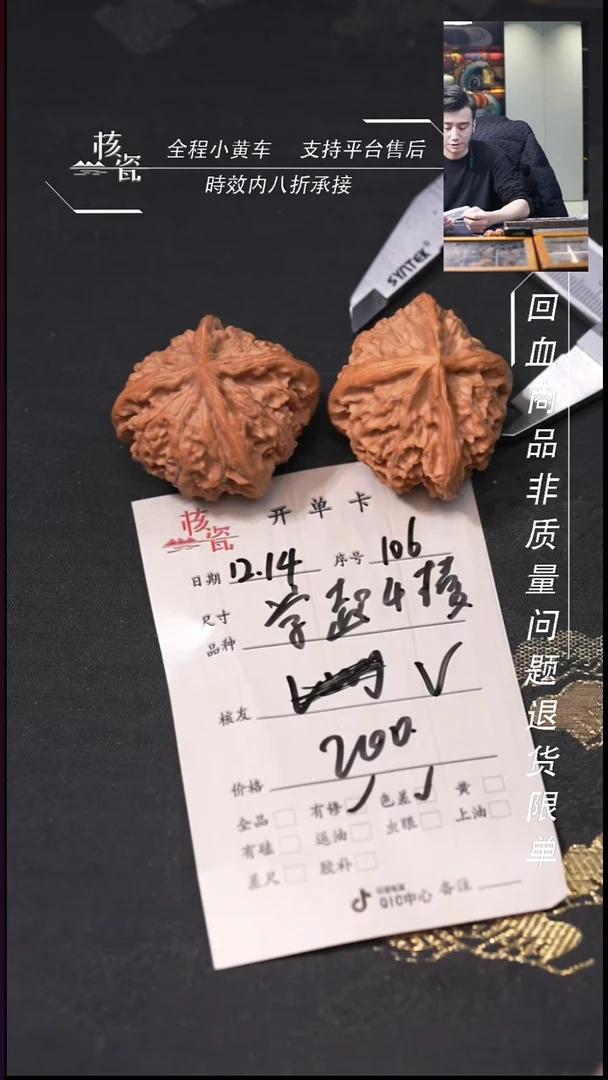 核瓷
全程小黄车 支持平台售后
時效内八折承接
SYNTEK
回血商品非质量问题退货限单
核瓷 开单卡
日期 12.14 序号 106
尺寸
品种
4棱
核友
价格 200
全品 有修 色差 黄
有磕 返油 虫眼 上油
差尺 胶补
QIC中心 备注